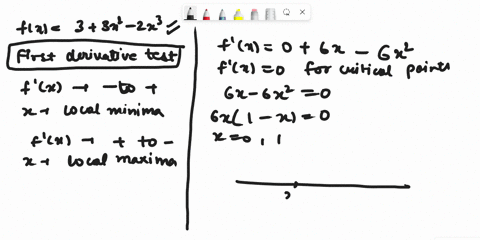 f(x) = 3 + 3x² - 2x³
First derivative test
f'(x) → - to +
x → local minima
f'(x) → + to -
x → local maxima
f'(x) = 0 + 6x - 6x²
f'(x) = 0 for critical points
6x - 6x² = 0
6x(1 - x) = 0
x = 0, 1